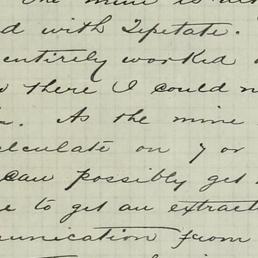 One mine is
d with Tepetate.
entirely worked
there I could n
As the mine
lculate on 7 or
can possibly get
e to get an extract
munication from